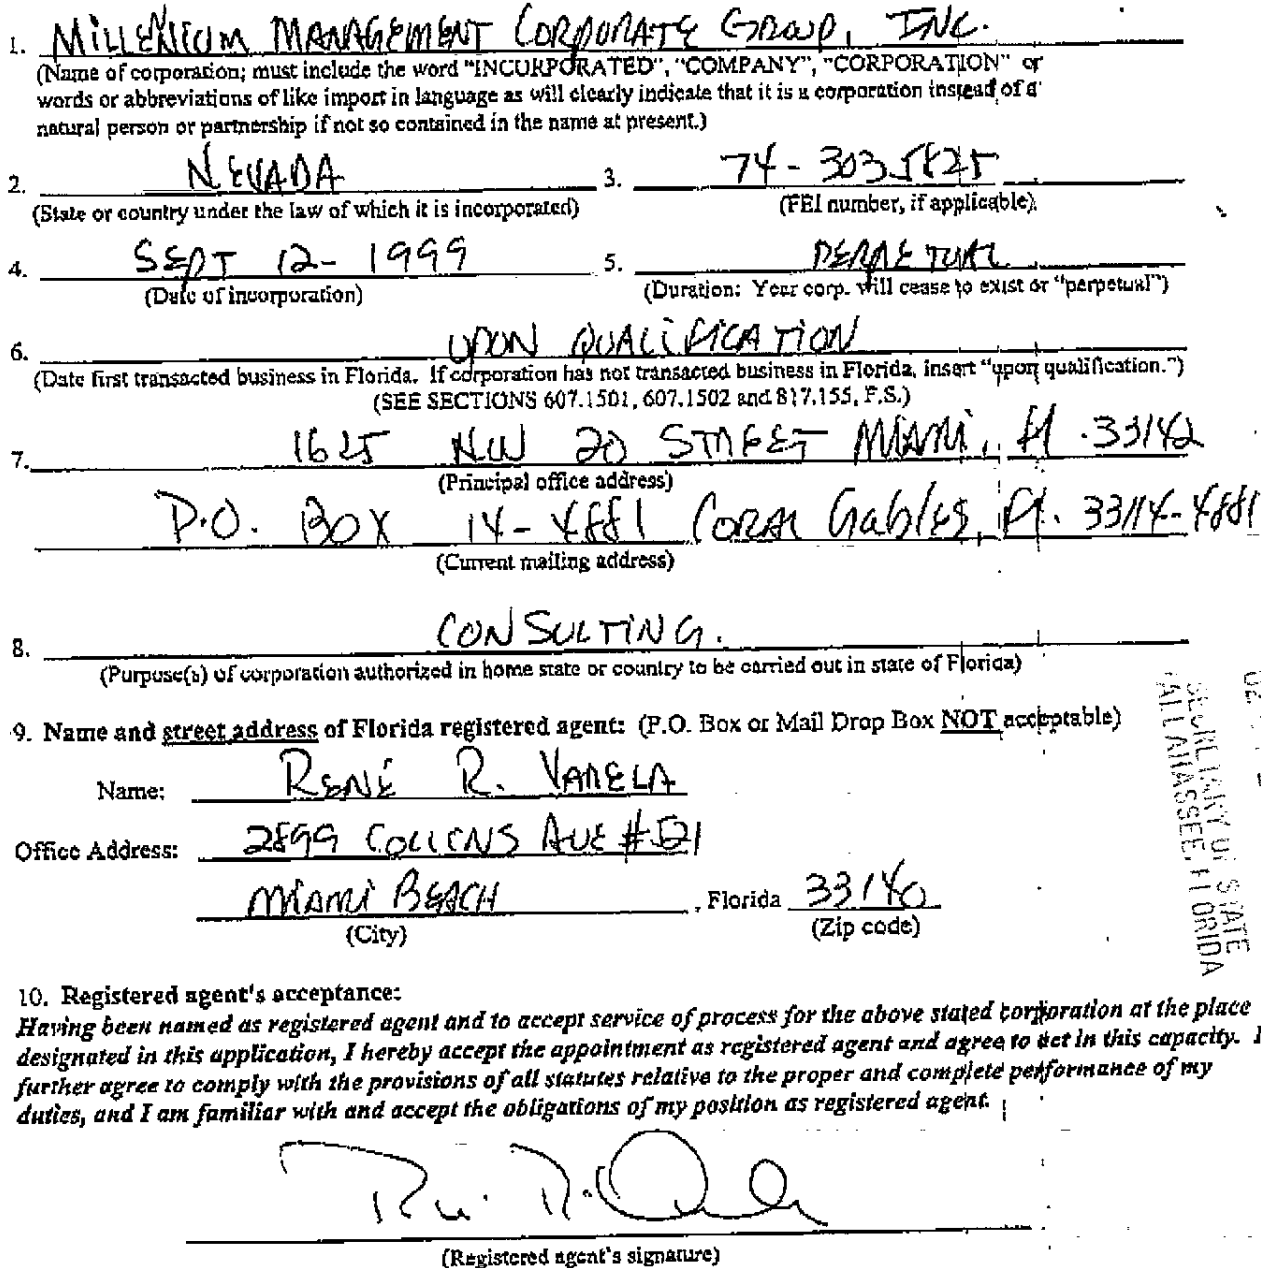 1. MILLENIUM MANAGEMENT CORPORATE GROUP, INC.
(Name of corporation; must include the word "INCORPORATED", "COMPANY", "CORPORATION" or
words or abbreviations of like import in language as will clearly indicate that it is a corporation instead of a
natural person or partnership if not so contained in the name at present.)
2. NEVADA 3. 74-3035825
(State or country under the law of which it is incorporated) (FEI number, if applicable)
4. SEPT 12-1999 5. PERPETUAL
(Date of incorporation) (Duration: Year corp. will cease to exist or "perpetual")
6. UPON QUALIFICATION
(Date first transacted business in Florida. If corporation has not transacted business in Florida, insert "upon qualification.")
(SEE SECTIONS 607.1501, 607.1502 and 817.155, F.S.)
7. 1625 NW 20 STREET MIAMI, Fl. 33142
(Principal office address)
P.O. BOX 14-4881 CORAL Gables, Fl. 33114-4881
(Current mailing address)
8. CONSULTING.
(Purpose(s) of corporation authorized in home state or country to be carried out in state of Florida)
9. Name and street address of Florida registered agent: (P.O. Box or Mail Drop Box NOT acceptable)
Name: RENÉ R. VARELA
Office Address: 2899 COLLINS AVE #521
MIAMI BEACH, Florida 33140
(City) (Zip code)
10. Registered agent's acceptance:
Having been named as registered agent and to accept service of process for the above stated corporation at the place
designated in this application, I hereby accept the appointment as registered agent and agree to act in this capacity. I
further agree to comply with the provisions of all statutes relative to the proper and complete performance of my
duties, and I am familiar with and accept the obligations of my position as registered agent.
(Registered agent's signature)
SECRETARY OF STATE
TALLAHASSEE, FLORIDA